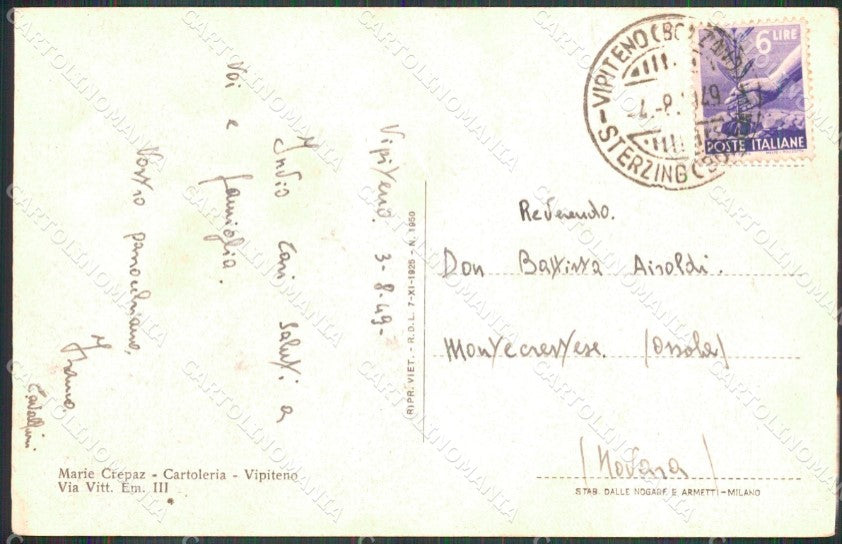 Vipiteno. 3-8.49-
Invio cari saluti a
Voi e famiglia.
Vostro parrocchiano,
Cavallini
Marie Crepaz - Cartoleria - Vipiteno
Via Vitt. Em. III
RIPR. VIET. - R.D.L. 7-XI-1925 - N. 1950
VIPITENO (BOLZANO)
4.-8.1949
STERZING (BO
6 LIRE
POSTE ITALIANE
Reverendo.
Don Battista Airoldi.
Montecrestese. (Ossola)
(Novara)
STAB. DALLE NOGARE E ARMETTI - MILANO
CARTOLINOMANIA